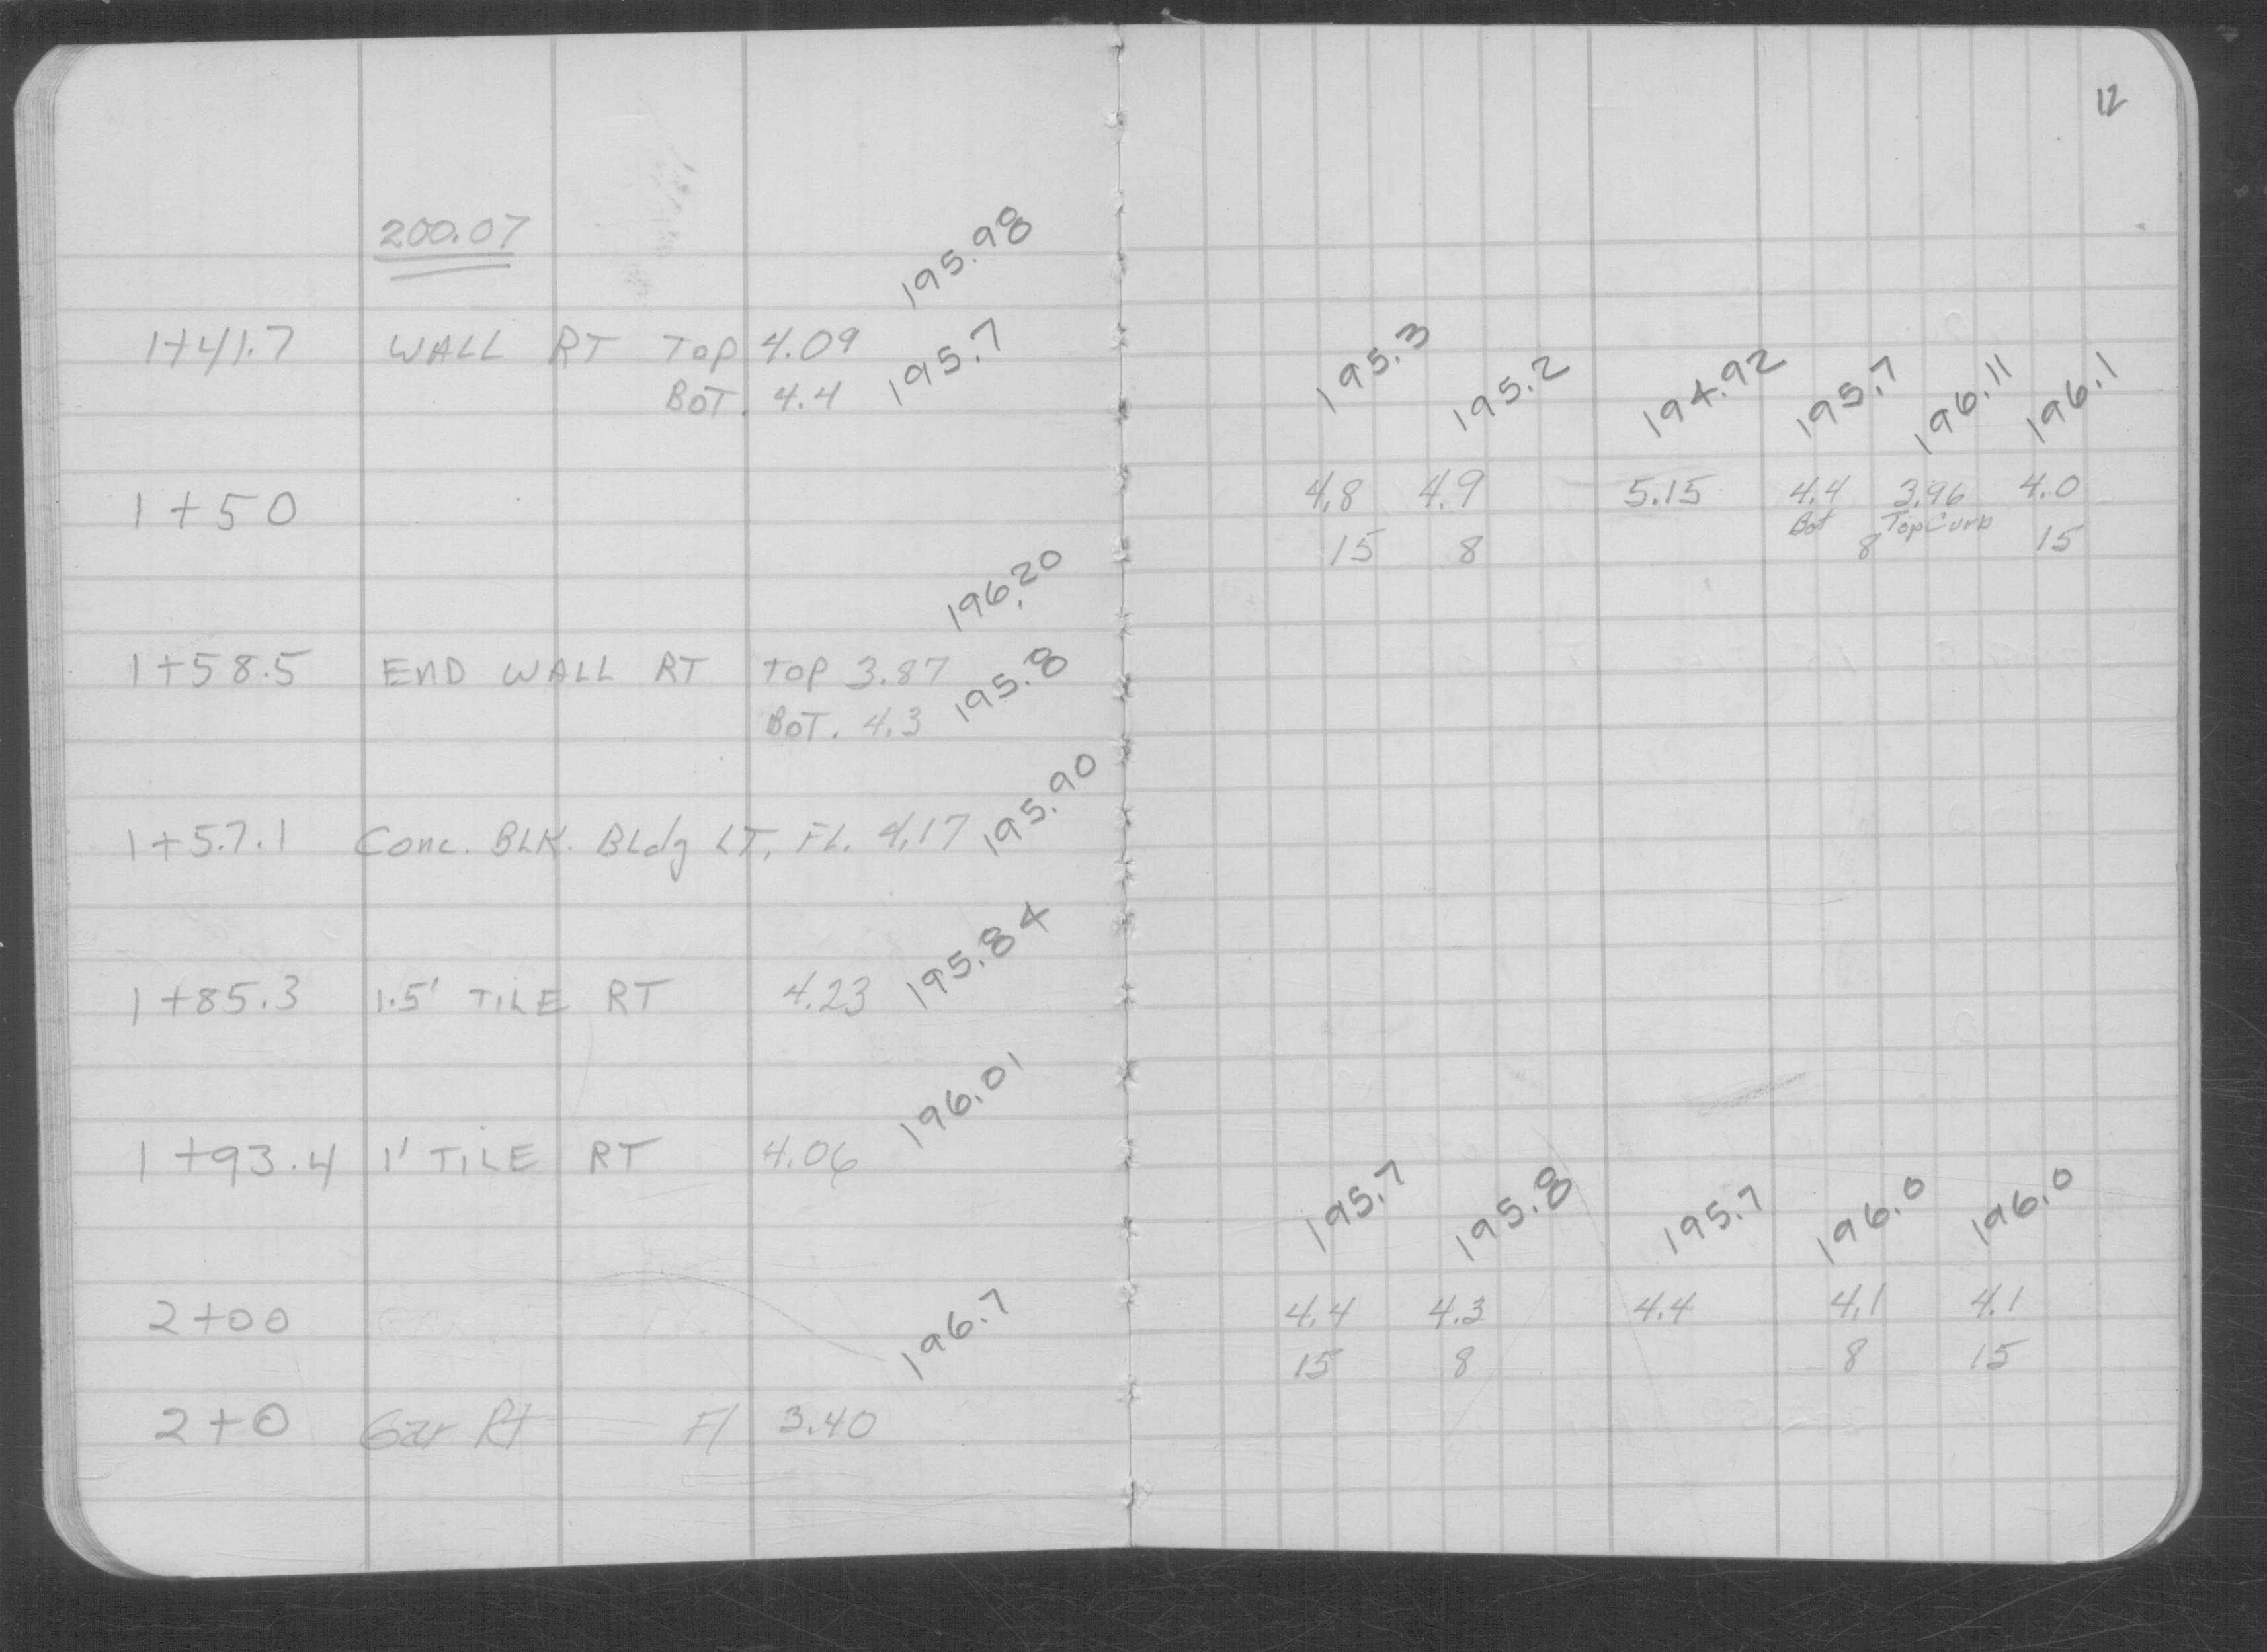 200.07
195.98
1+41.7 WALL RT Top 4.09
195.7
BOT. 4.4
1+50
196.20
1+58.5 END WALL RT TOP 3.87
195.8
BOT. 4.3
195.90
1+57.1 Conc. BLK. BLdg LT, FL. 4.17
195.84
1+85.3 1.5' TILE RT 4.23
196.01
1+93.4 1' TILE RT 4.06
2+00
196.7
2+0 Gar Rt Fl 3.40
12
195.3 195.2 194.92 195.7 196.11 196.1
4.8 4.9 5.15 4.4 3.96 4.0
Bot Top Curb
15 8 8 15
195.7 195.8 195.7 196.0 196.0
4.4 4.3 4.4 4.1 4.1
15 8 8 15